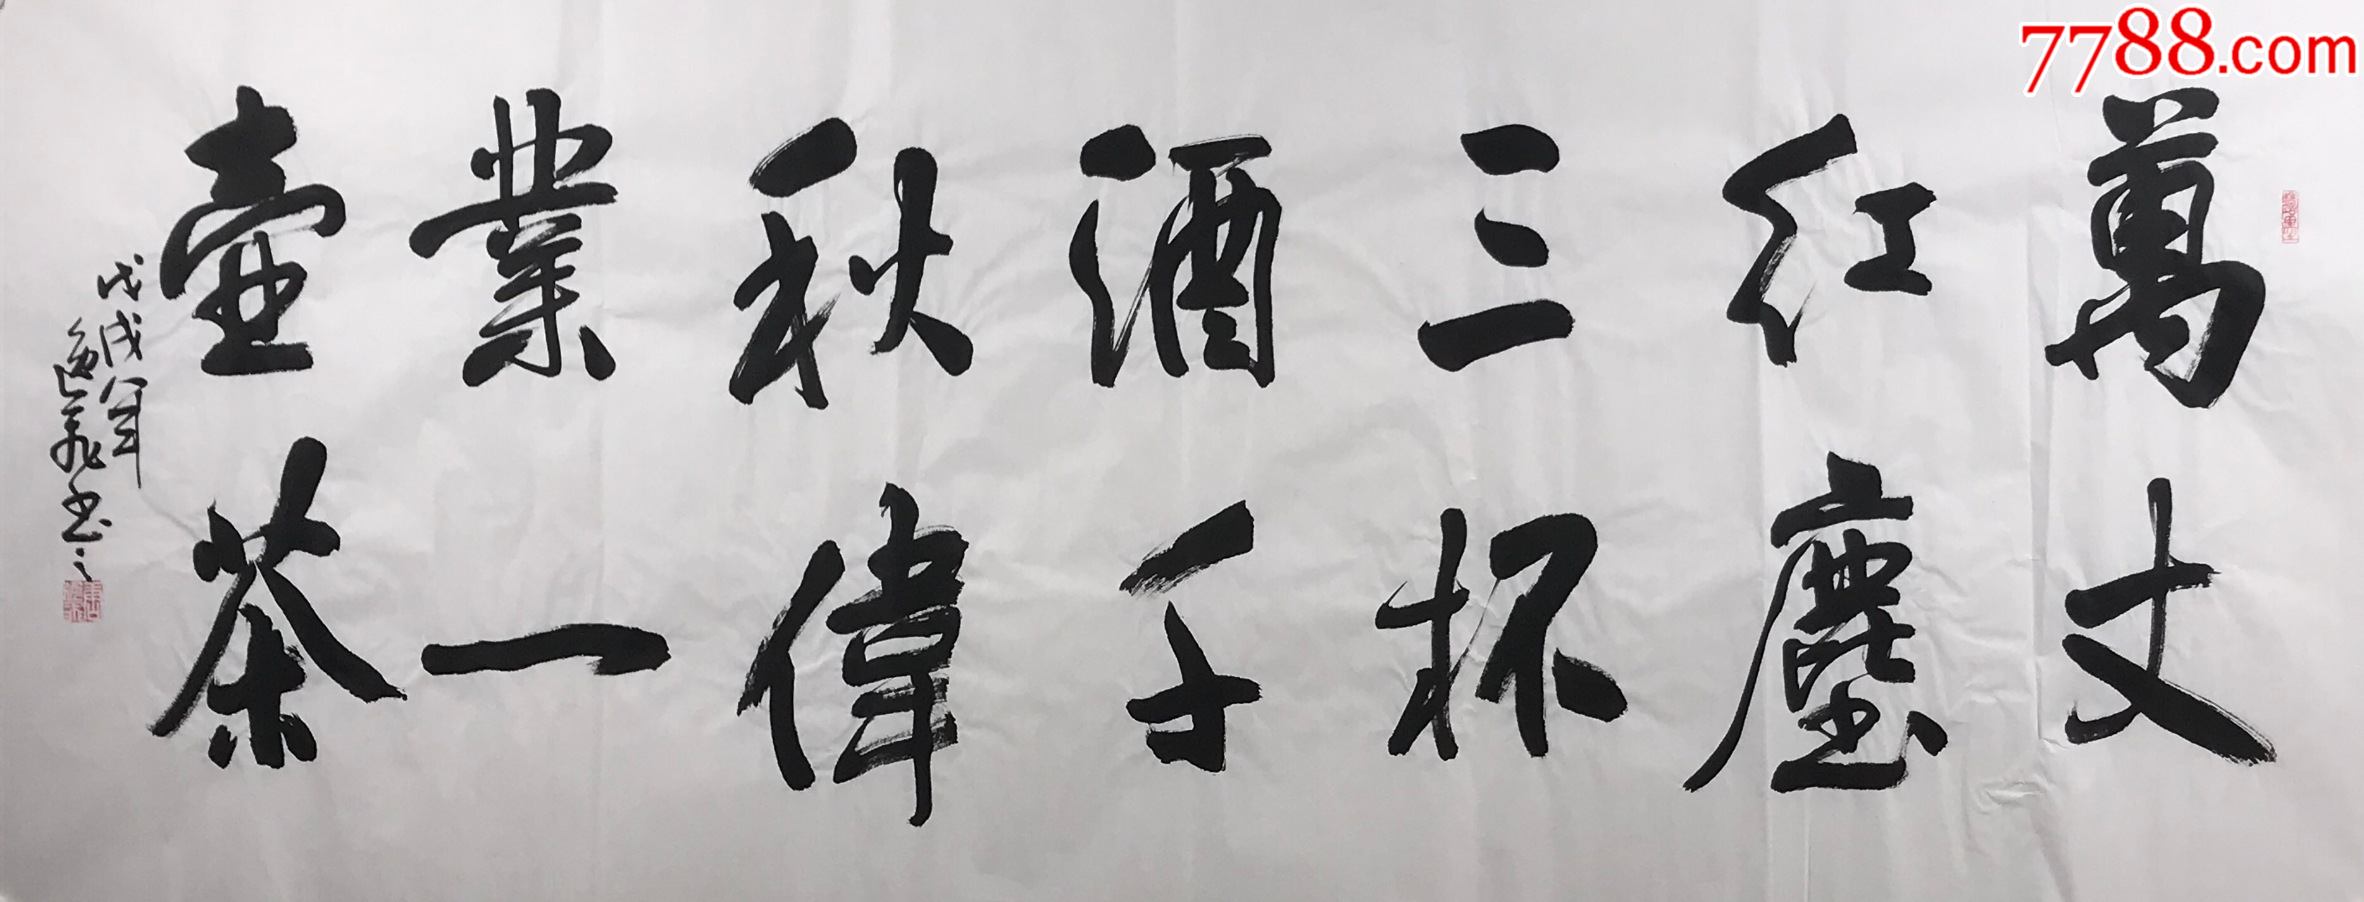 萬丈
紅塵
三杯
酒千
秋偉
業一
壺茶
戊戌年
書
7788.com